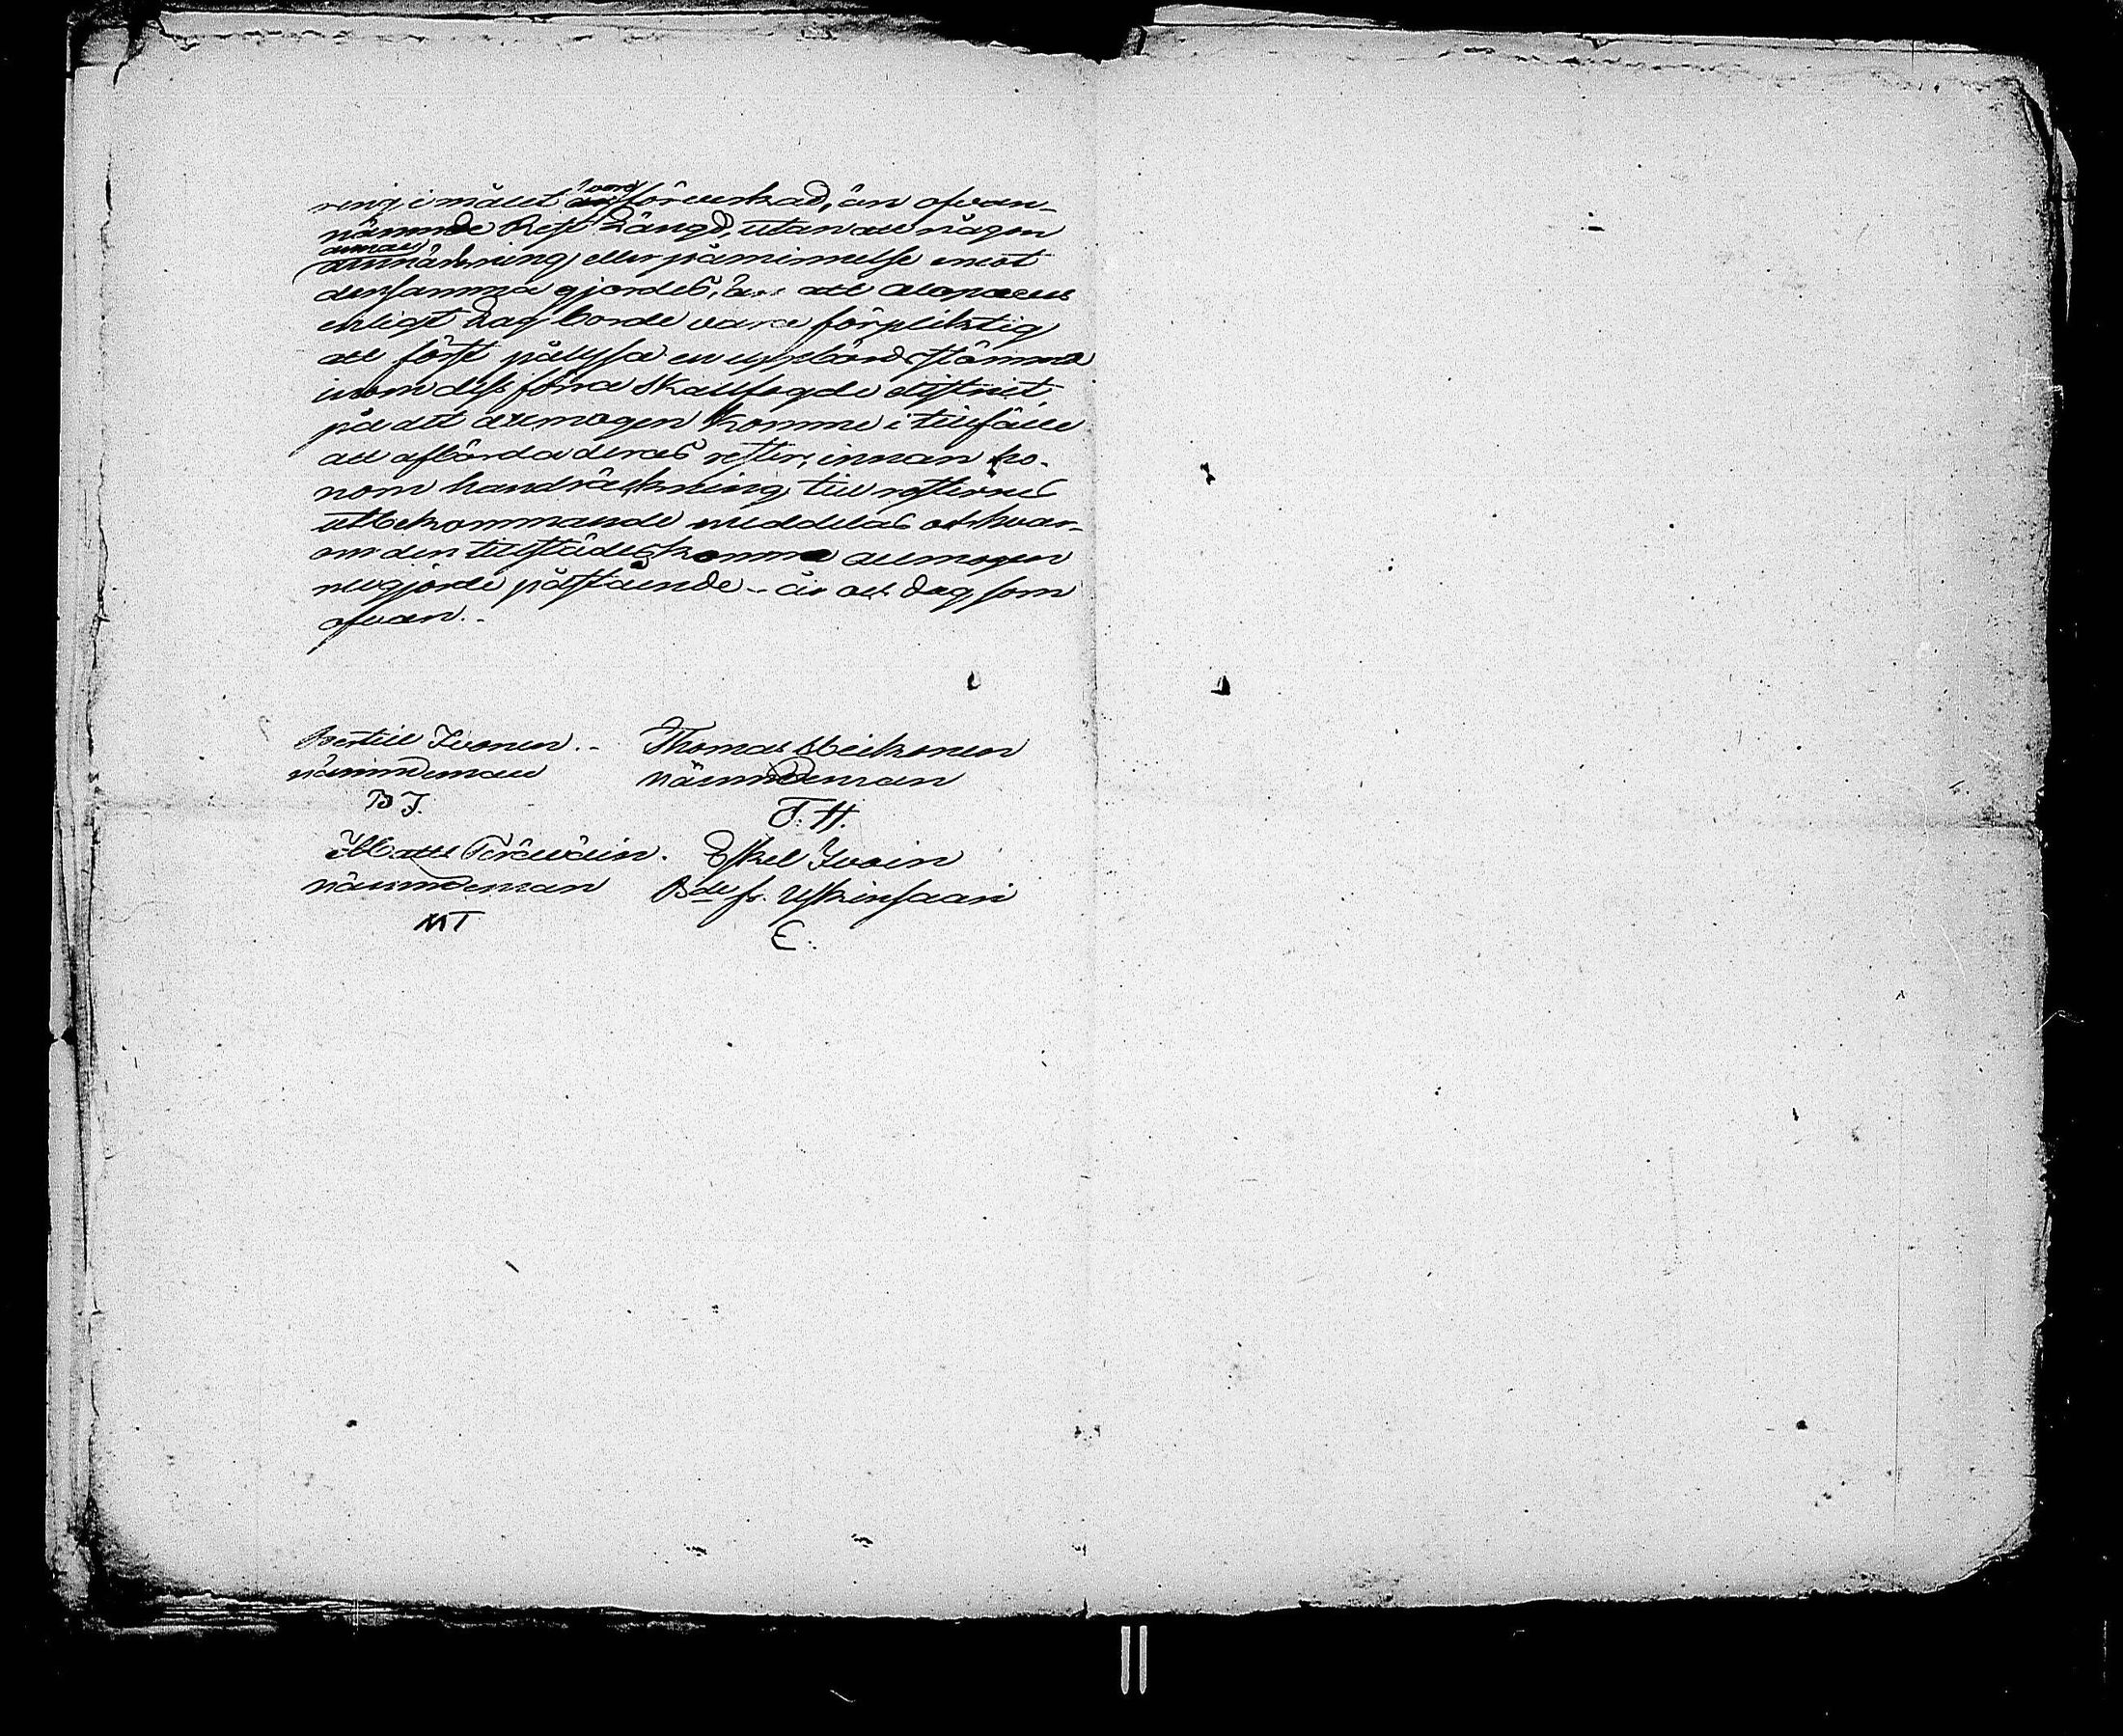 ring i målet vore förverkad, än ofvan-
nämnde Rest Längd, utan att någon
annan anmärkning eller påminnelse emot
densamma gjordes, än att Alopaeus
enligt Lag borde vara förpliktig
att först pålysa en uppbördsstämma
inom dess förra Skallfogde district,
på det allmogen komme i tillfälle
att afbörda deras rester, innan ho-
nom handräckning till resternes
utbekommande meddelas och hvar-
om den tillstädeskomme allmogen
nu gjorde påstående - år och dag som
ofvan. -
Bertill Ivonen. - Thomas Heikonen
nämndeman nämndeman
B I. T. H.
Matts Terävåin. Eskel Ivoin
nämndeman Bde fr. Uskinsaari
MT E.